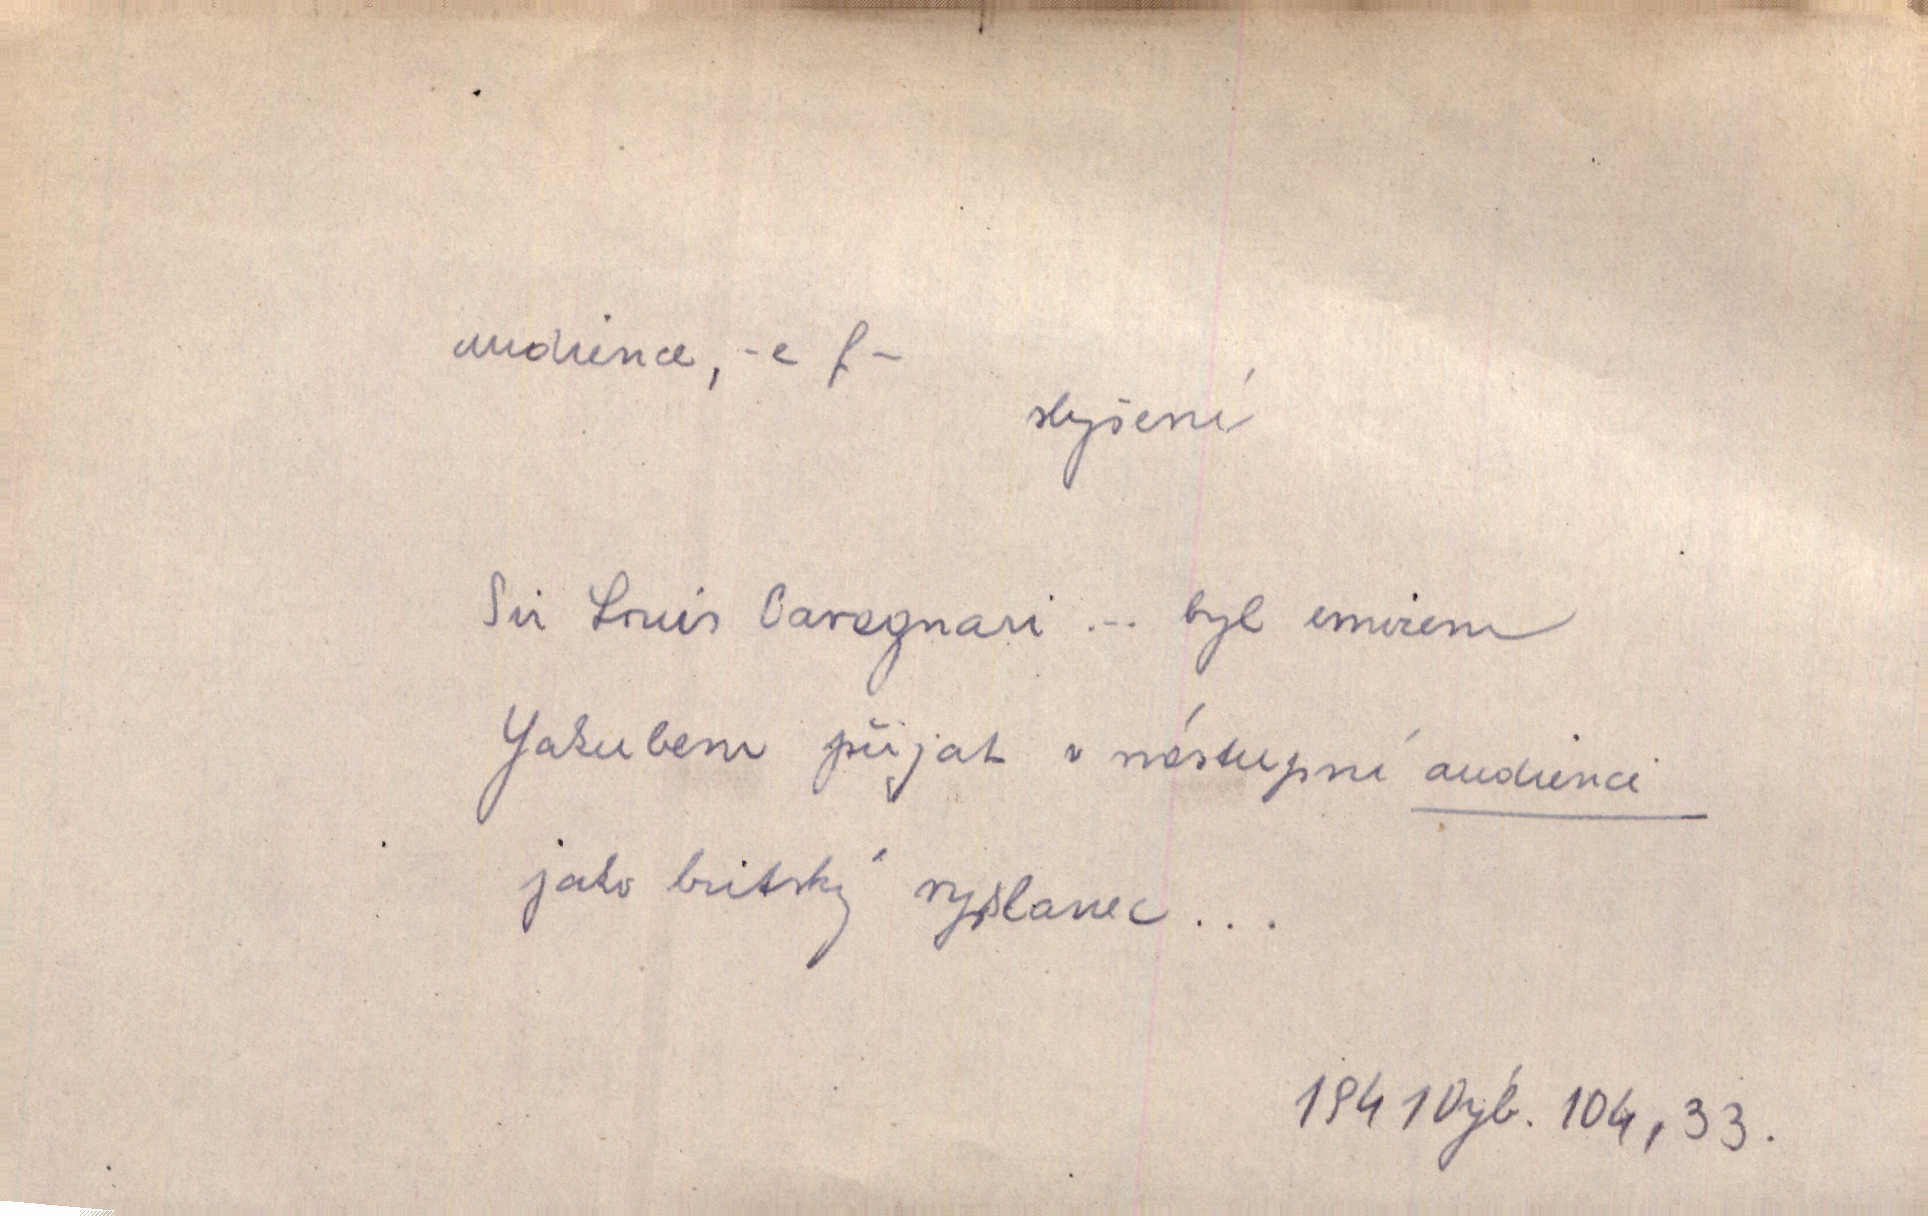 audience, -e f -
slyšení
Sir Louis Cavagnari ... byl emirem
Yakubem přijat v nástupní audienci
jako britský vyslanec ...
1941 Dyb. 104, 33.